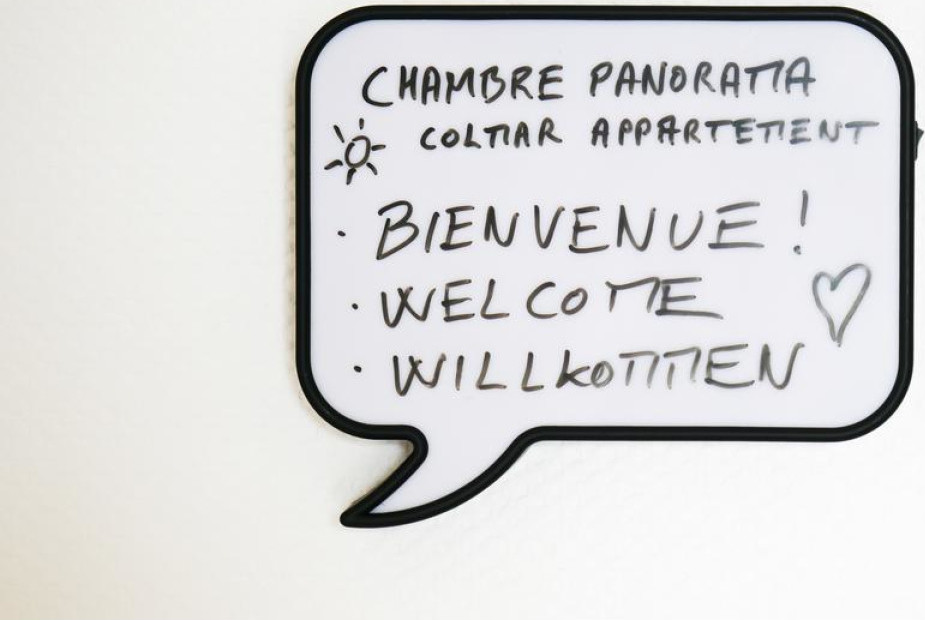 CHAMBRE PANORAMA
COLMAR APPARTEMENT
· BIENVENUE !
· WELCOME
· WILLKOMMEN